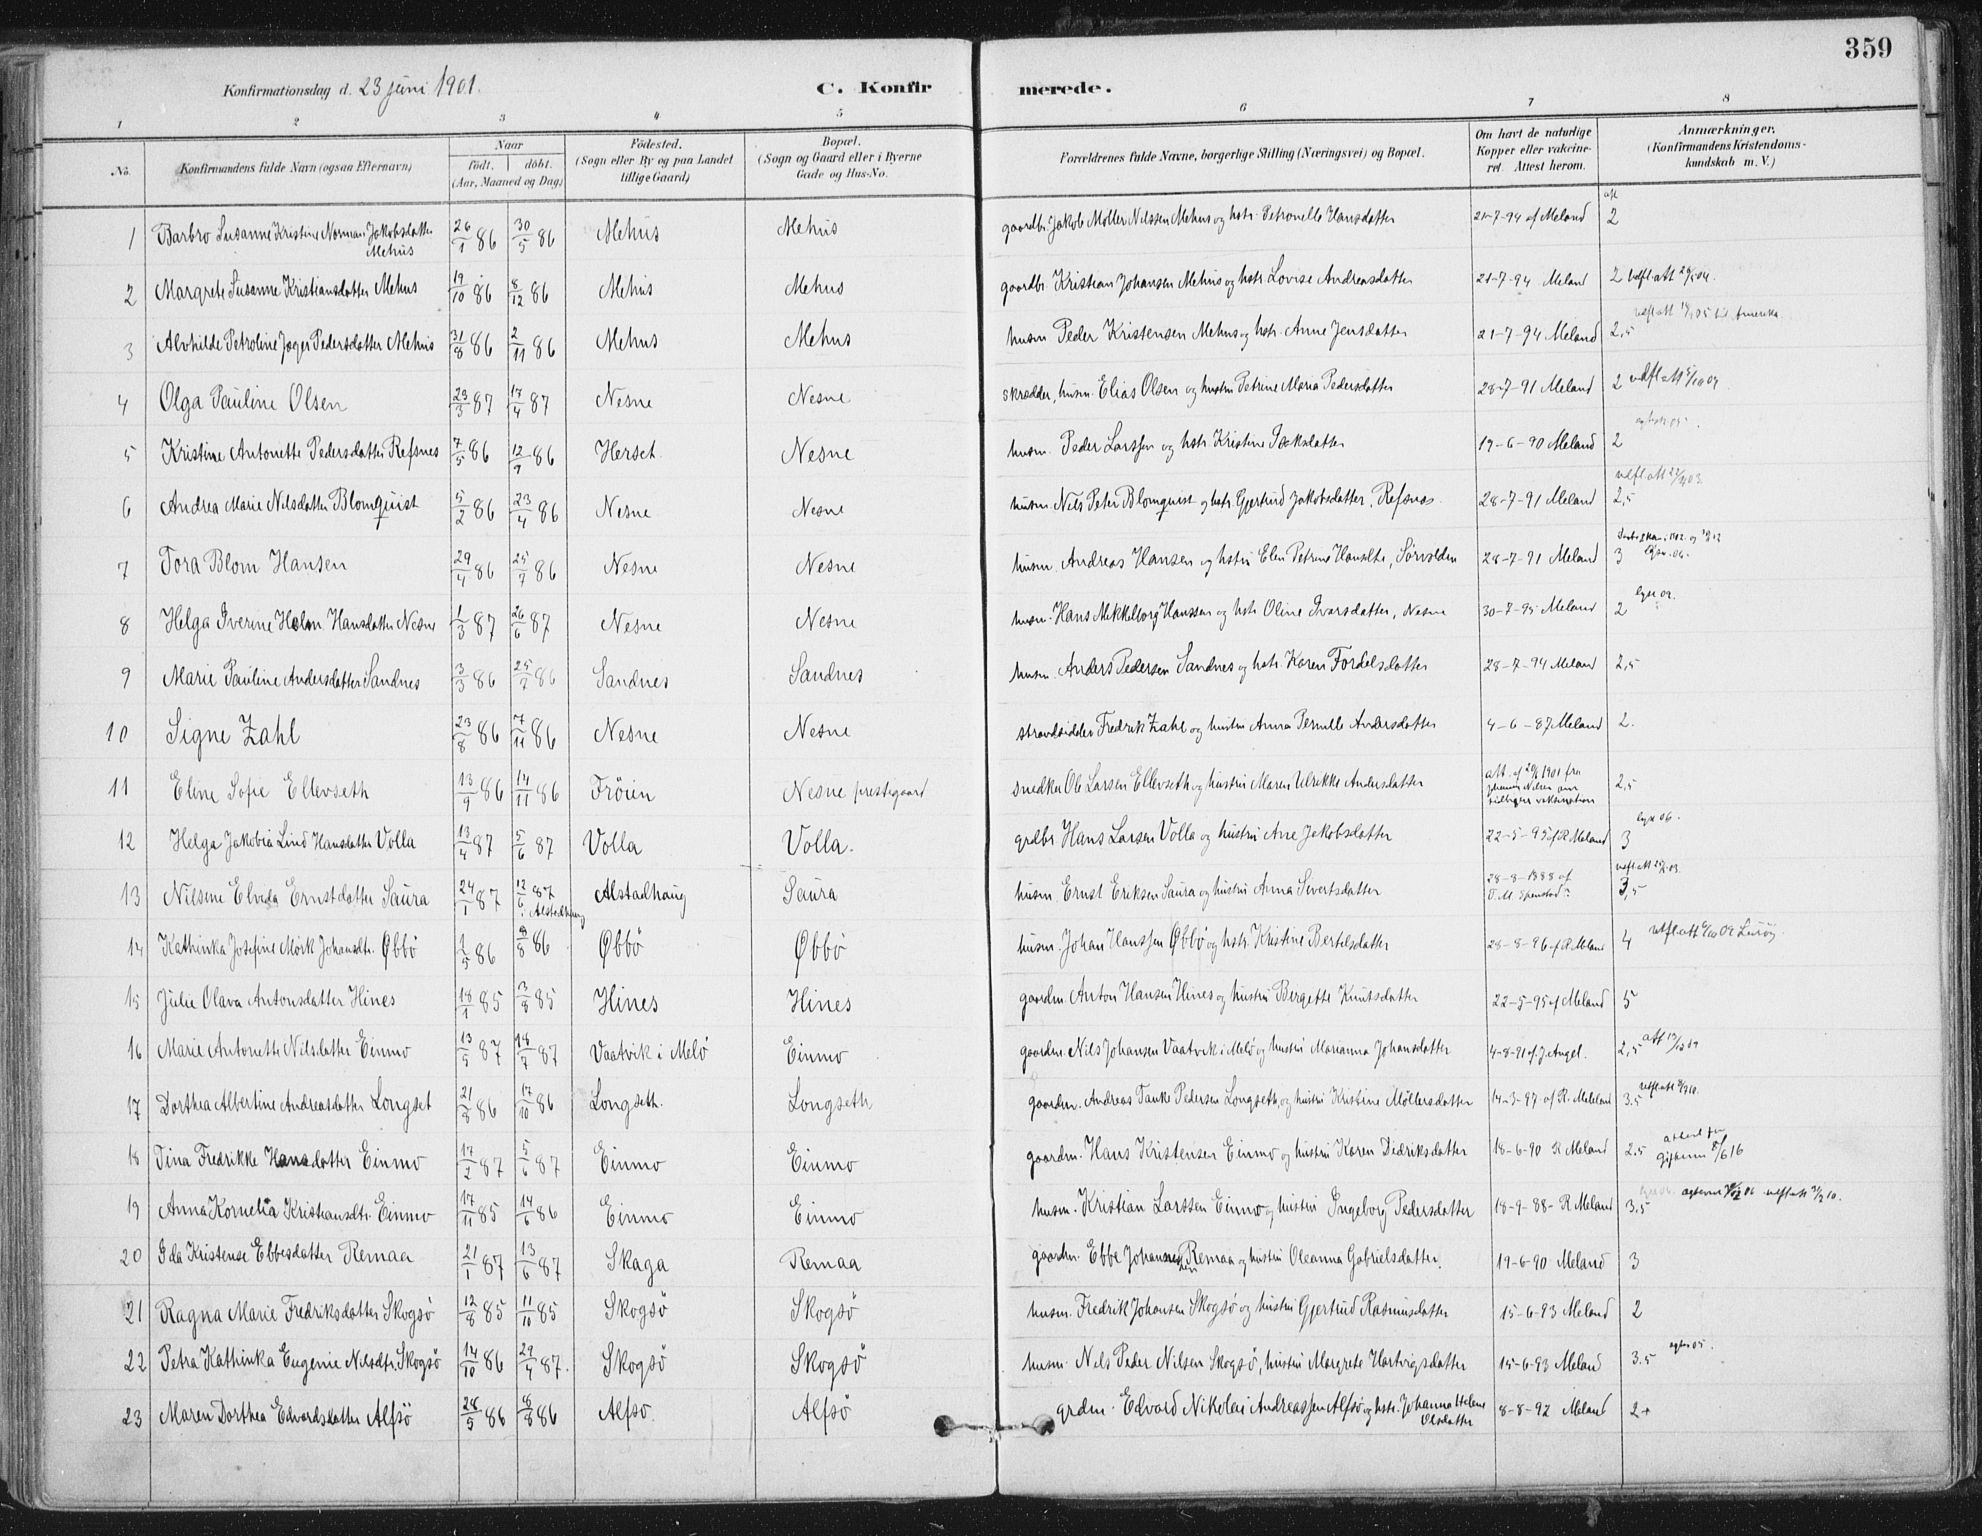 359
Konfirmationsdag d. 23 juni 1901. C. Konfirmerede.
1 2 3 4 5 6 7 8
No. Konfirmandens fulde Navn (ogsaa Efternavn) Naar født. døbt. (Aar, Maaned og Dag) Fødested. (Sogn eller By og paa Landet tillige Gaard) Bopæl. (Sogn og Gaard eller i Byerne Gade og Hus-No.) Forældrenes fulde Navne, borgerlige Stilling (Næringsvei) og Bopæl. Om havt de naturlige Kopper eller vakcineret. Attest herom. Anmærkninger. (Konfirmandens Kristendomskundskab m. V.)
1 Barbro Susanne Kristine Norman Jakobsdatter Mehus 26/1 86 30/5 86 Mehus Mehus gaardbr. Jakob Møller Nilssen Mehus og hstr. Petronelle Hansdatter 21-7-94 af Meland 2
2 Margrete Susanne Kristiansdatter Mehus 19/10 86 8/12 86 Mehus Mehus gaardbr. Kristian Johansen Mehus og hstr. Lovise Andreasdatter 21-7-94 Meland 2
3 Alvhilde Petroline Jager Pedersdatter Mehus 31/8 86 2/11 86 Mehus Mehus husm. Peder Kristensen Mehus og hstr. Anne Jensdatter 21-7-94 Meland 2,5 til Amerika
4 Olga Pauline Olsen 29/3 87 17/4 87 Nesne Nesne skrædder, husm. Elias Olsen og hustru Petrine Maria Pedersdatter 28-7-91 Meland 2
5 Kristine Antonette Pedersdatter Refsnes 7/5 86 12/9 86 Herset Nesne husm. Peder Larssen og hstr. Kristine 19-6-90 Meland 2
6 Andrea Marie Nilsdatter Blomquist 5/2 86 23/4 86 Nesne Nesne husm. Nils Peter Blomquist og hstr. Gjertrud Jakobsdatter, Refsnes. 28-7-91 Meland 2,5
7 Tora Blom Hansen 29/4 86 25/7 86 Nesne Nesne husm. Andreas Hansen og hstru Elen Petrine 28-7-91 Meland 3
8 Helga Iverine Holm Hansdatter Nesne 1/3 87 26/6 87 Nesne Nesne husm. Hans Mekkelborg Hanssen og hstr. Oline Ivarsdatter, Nesne 30-7-95 Meland 2
9 Marie Pauline Andersdatter Sandnes 3/3 86 25/7 86 Sandnes Sandnes husm. Anders Pedersen Sandnes og hstr. Karen Fordelsdatter 28-7-94 Meland 2,5
10 Signe Zahl 23/8 86 7/11 86 Nesne Nesne strandsidder Fredrik Zahl og hustru Anna Pernille Andersdatter 4-6-87 Meland 2.
11 Eline Sofie Ellevseth 13/9 86 14/11 86 Frøien Nesne prestegaard snedker Ole Larsen Ellevseth og hustru Maren Ulrikke Andersdatter att. af 20/6 1901 fra Johannes Nilsen om tidligere vaksination 2,5
12 Helga Jakobia Lind Hansdatter Volla 13/4 87 5/6 87 Volla Volla. grdbr. Hans Larsen Volla og hustru Ane Jakobsdatter 22-5-95 af R. Meland 3
13 Nilsine Elvida Ernstdatter Saura 24/1 87 12/6 87 i Alstadhaug Alstadhaug Saura husm. Ernst Eriksen Saura og hustru Anna Sivertsdatter 28-8-1888 af 3,5
14 Kathinka Josefine Mørk Johansdtr. Øbbø 1/5 86 8/8 86 Øbbø Øbbø husm. Johan Hanssen Øbbø og hstr. Kristine Bertelsdatter 28-8-96 af R. Meland 4
15 Julie Olava Antonsdatter Hines 18/1 85 3/8 85 Hines Hines gaardm. Anton Hansen Hines og hustru Bergette Knutsdatter 22-5-95 af Meland 5
16 Marie Antonette Nilsdatter Einmo 13/5 87 18/7 87 Vaatvik i Melø Einmo gaardm. Nils Johansen Vaatvik i Melø og hustru Marianna Johansdatter 4-8-91 af J. Angel. 2,5
17 Dorthea Albertine Andreasdatter Longset 21/8 86 17/10 86 Longseth. Longseth gaardm. Andreas Tanke Pedersen Longseth, og hustru Kristine Møllersdatter 14-3-97 af R. Meland 3.5
18 Tina Fredrikke Hansdatter Einmo 17/2 87 5/6 87 Einmo Einmo gaardm. Hans Kristensen Einmo og hustru Karen Didriksdatter 18-6-90 R Meland 2.5
19 Anna Kornelia Kristiansdtr. Einmo 17/11 85 14/6 86 Einmo Einmo husm. Kristian Larssen Einmo og hustru Ingeborg Pedersdatter 18-9-88- R Meland 3,5
20 Ida Kristense Ebbesdatter Remaa 21/1 87 13/6 87 Skaga Remaa gaardm. Ebbe Johansen Remaa og hustru Oleanna Gabrielsdatter. 19-6-90 Meland 3
21 Ragna Marie Fredriksdatter Skogsø 12/8 85 11/10 85 Skogsø Skogsø husm. Fredrik Johansen Skogsø og hustru Gjertrud Rasmusdatter 15-6-93 Meland 2
22 Petra Kathinka Eugenie Nilsdtr. Skogsø 14/10 86 29/4 87. Skogsø Skogsø husm. Nils Peder Nilsen Skogsø, hustru Margrete Hartvigsdatter 15-6-93 Meland 3.5
23 Maren Dorthea Edvardsdatter Alfsø 28/5 86 8/8 86 Alfsø. Alfsø grdm. Edvard Nikolai Andreassen Alfsø og hstr. Johanna Helene Olsdatter 8-8-92 Meland 2+